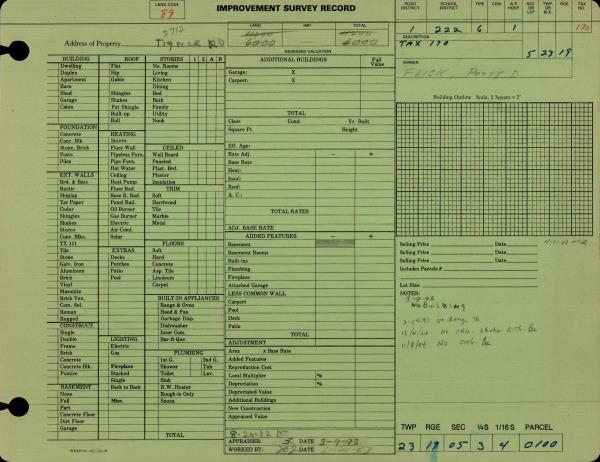 LAND CODE
89
IMPROVEMENT SURVEY RECORD
LAND IMP. TOTAL
4200 4200
6000 6000
ASSESSED VALUATION
5712
Address of Property Tigner RD
ROAD DISTRICT SCHOOL DISTRICT FIRE CEM. A.P. HOSP. SEC OR LOT TWP OR BLK RGE TAX NO
1 222 6 1 170
DESCRIPTION
TAX 170 5 23 19
OWNER
FLICK, Patty D
BUILDING STORIES 1 2 A B
Dwelling Flat No. Rooms
Duplex Hip Living
Apartment Gable Kitchen
Barn Dining
Shed Shingles Bed
Garage Shakes Bath
Cabin Pat Shingle Family
Built-up Utility
Roll Nook
FOUNDATION
Concrete HEATING
Conc. Blk. Stoves CEILED
Stone, Brick Floor-Wall Wall Board
Posts Pipeless Furn. Paneled
Piles Pipe Furn. Plast. Brd.
Hot Water Plaster
EXT. WALLS Ceiling Insulation
Brd. & Bats Heat Pump TRIM
Rustic Floor Rad. Soft
Shiplap Base B. Rad. Hardwood
Tar Paper Panel Rad. Tile
Cedar Oil Burner Marble
Shingles Gas Burner Metal
Shakes Electric
Stucco Air Cond.
Conc. Blks. Solar
TX-111 FLOORS
Tile EXTRAS Soft
Stone Decks Hard
Galv. Iron Porches Concrete
Aluminum Patio Asp. Tile
Brick Pool Linoleum
Vinyl Carpet
Masonite
Brick Ven. BUILT-IN APPLIANCES
Com. Sel. Range & Oven
Raman Hood & Fan
Rugged Garbage Disp.
CONSTRUCT. Dishwasher
Single Inter Com.
Double LIGHTING Bar-B-Que
Frame Electric
Brick Gas PLUMBING
Concrete 1st G. 2nd G.
Concrete Blk. Fireplace Shower Tub
Pumice Stacked Toilet Lav.
Single Sink
BASEMENT Back to Back H.W. Heater
None Rough-in Only
Full Misc. Sauna
Part
Concrete Floor
Dirt Floor
Garage TOTAL
ADDITIONAL BUILDINGS Full Value
Garage: X
Carport: X
TOTAL
Class Cond. Yr. Built
Square Ft. Height
Eff. Age:
Rate Adj. − +
Base Rate
Heat:
Insul:
Roof:
A. C.:
TOTAL RATES
ADJ. BASE RATE
ADDED FEATURES − +
Basement
Basement Rooms
Built-ins
Plumbing
Fireplace
Attached Garage
LESS COMMON WALL
Carport
Pool
Deck
Patio
TOTAL
ADJUSTMENT
Area x Base Rate
Added Features
Reproduction Cost
Local Multiplier %
Depreciation %
Depreciated Value
Additional Buildings
New Construction
Appraised Value
8-26-82
APPRAISER: DATE 3-9-93
WORKED BY: DATE
Building Outline Scale, 1 Square = 2'
Selling Price Date
Selling Price Date
Selling Price Date
Includes Parcels #
Lot Size:
NOTES:
3-9-93
No Building
No change
NO CHG
11/8/04 NO CHG
TWP RGE SEC ¼S 1/16 S PARCEL
23 19 05 3 4 0100